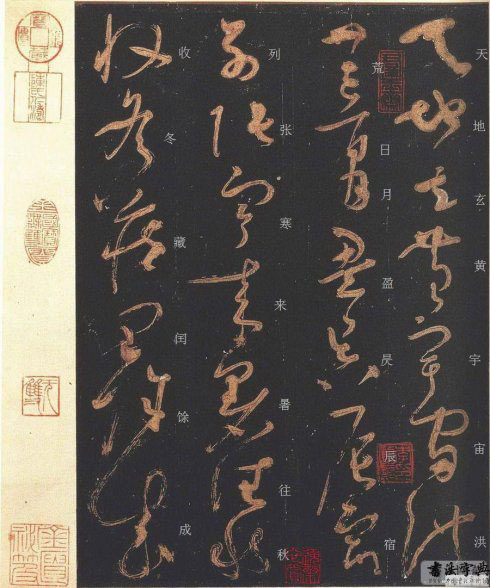 天地玄黄宇宙洪
荒日月盈昃辰宿
列张寒来暑往秋
收冬藏闰馀成
書法字典